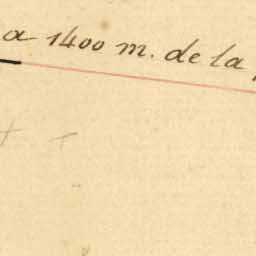 a 1400 m. de la